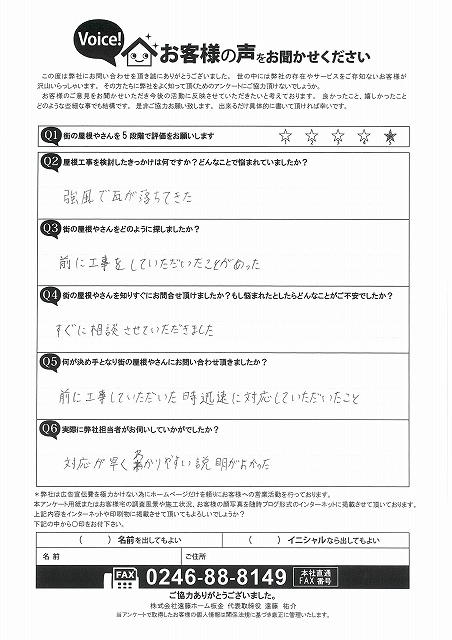 Voice!
お客様の声をお聞かせください
この度は弊社にお問い合わせを頂き誠にありがとうございました。世の中には弊社の存在やサービスをご存知ないお客様が
沢山いらっしゃいます。その方たちに弊社をよく知って頂くためのアンケートにご協力頂けないでしょうか。
お客様のご意見をお聞かせいただき今後の活動に反映させていただきたいと考えております。良かったこと、嬉しかったこと
どのような些細な事でも結構です。是非ご協力お願い致します。出来るだけ具体的に書いて頂ければ幸いです。
Q1 街の屋根やさんを5段階で評価をお願いします ☆ ☆ ☆ ☆ ★
Q2 屋根工事を検討したきっかけは何ですか?どんなことで悩まれていましたか?
強風で瓦が落ちてきた
Q3 街の屋根やさんをどのように探しましたか?
前に工事をしていただいたことがあった
Q4 街の屋根やさんを知りすぐにお問合せ頂けましたか?もし悩まれたとしたらどんなことがご不安でしたか?
すぐに相談させていただきました
Q5 何が決め手となり街の屋根やさんにお問い合わせ頂きましたか?
前に工事していただいた時迅速に対応していただいたこと
Q6 実際に弊社担当者がお伺いしていかがでしたか?
対応が早くわかりやすい説明がよかった
*弊社は広告宣伝費を極力かけない為にホームページだけを頼りにお客様への営業活動を行っております。
本アンケート用紙またはお客様宅の調査風景や施工状況、お客様の顔写真を随時ブログ形式のインターネットに掲載させて頂いております。
上記内容をインターネットや印刷物に掲載させて頂いてもよろしいでしょうか?
下記の中から〇印をお付下さい。
( )名前を出してもよい ( )イニシャルなら出してもよい
名前 ご住所
FAX 0246-88-8149 本社直通
FAX番号
ご協力ありがとうございました。
株式会社遠藤ホーム板金 代表取締役 遠藤 祐介
当アンケートで取得したお客様の個人情報は関係法規に基づき厳正に管理いたします。